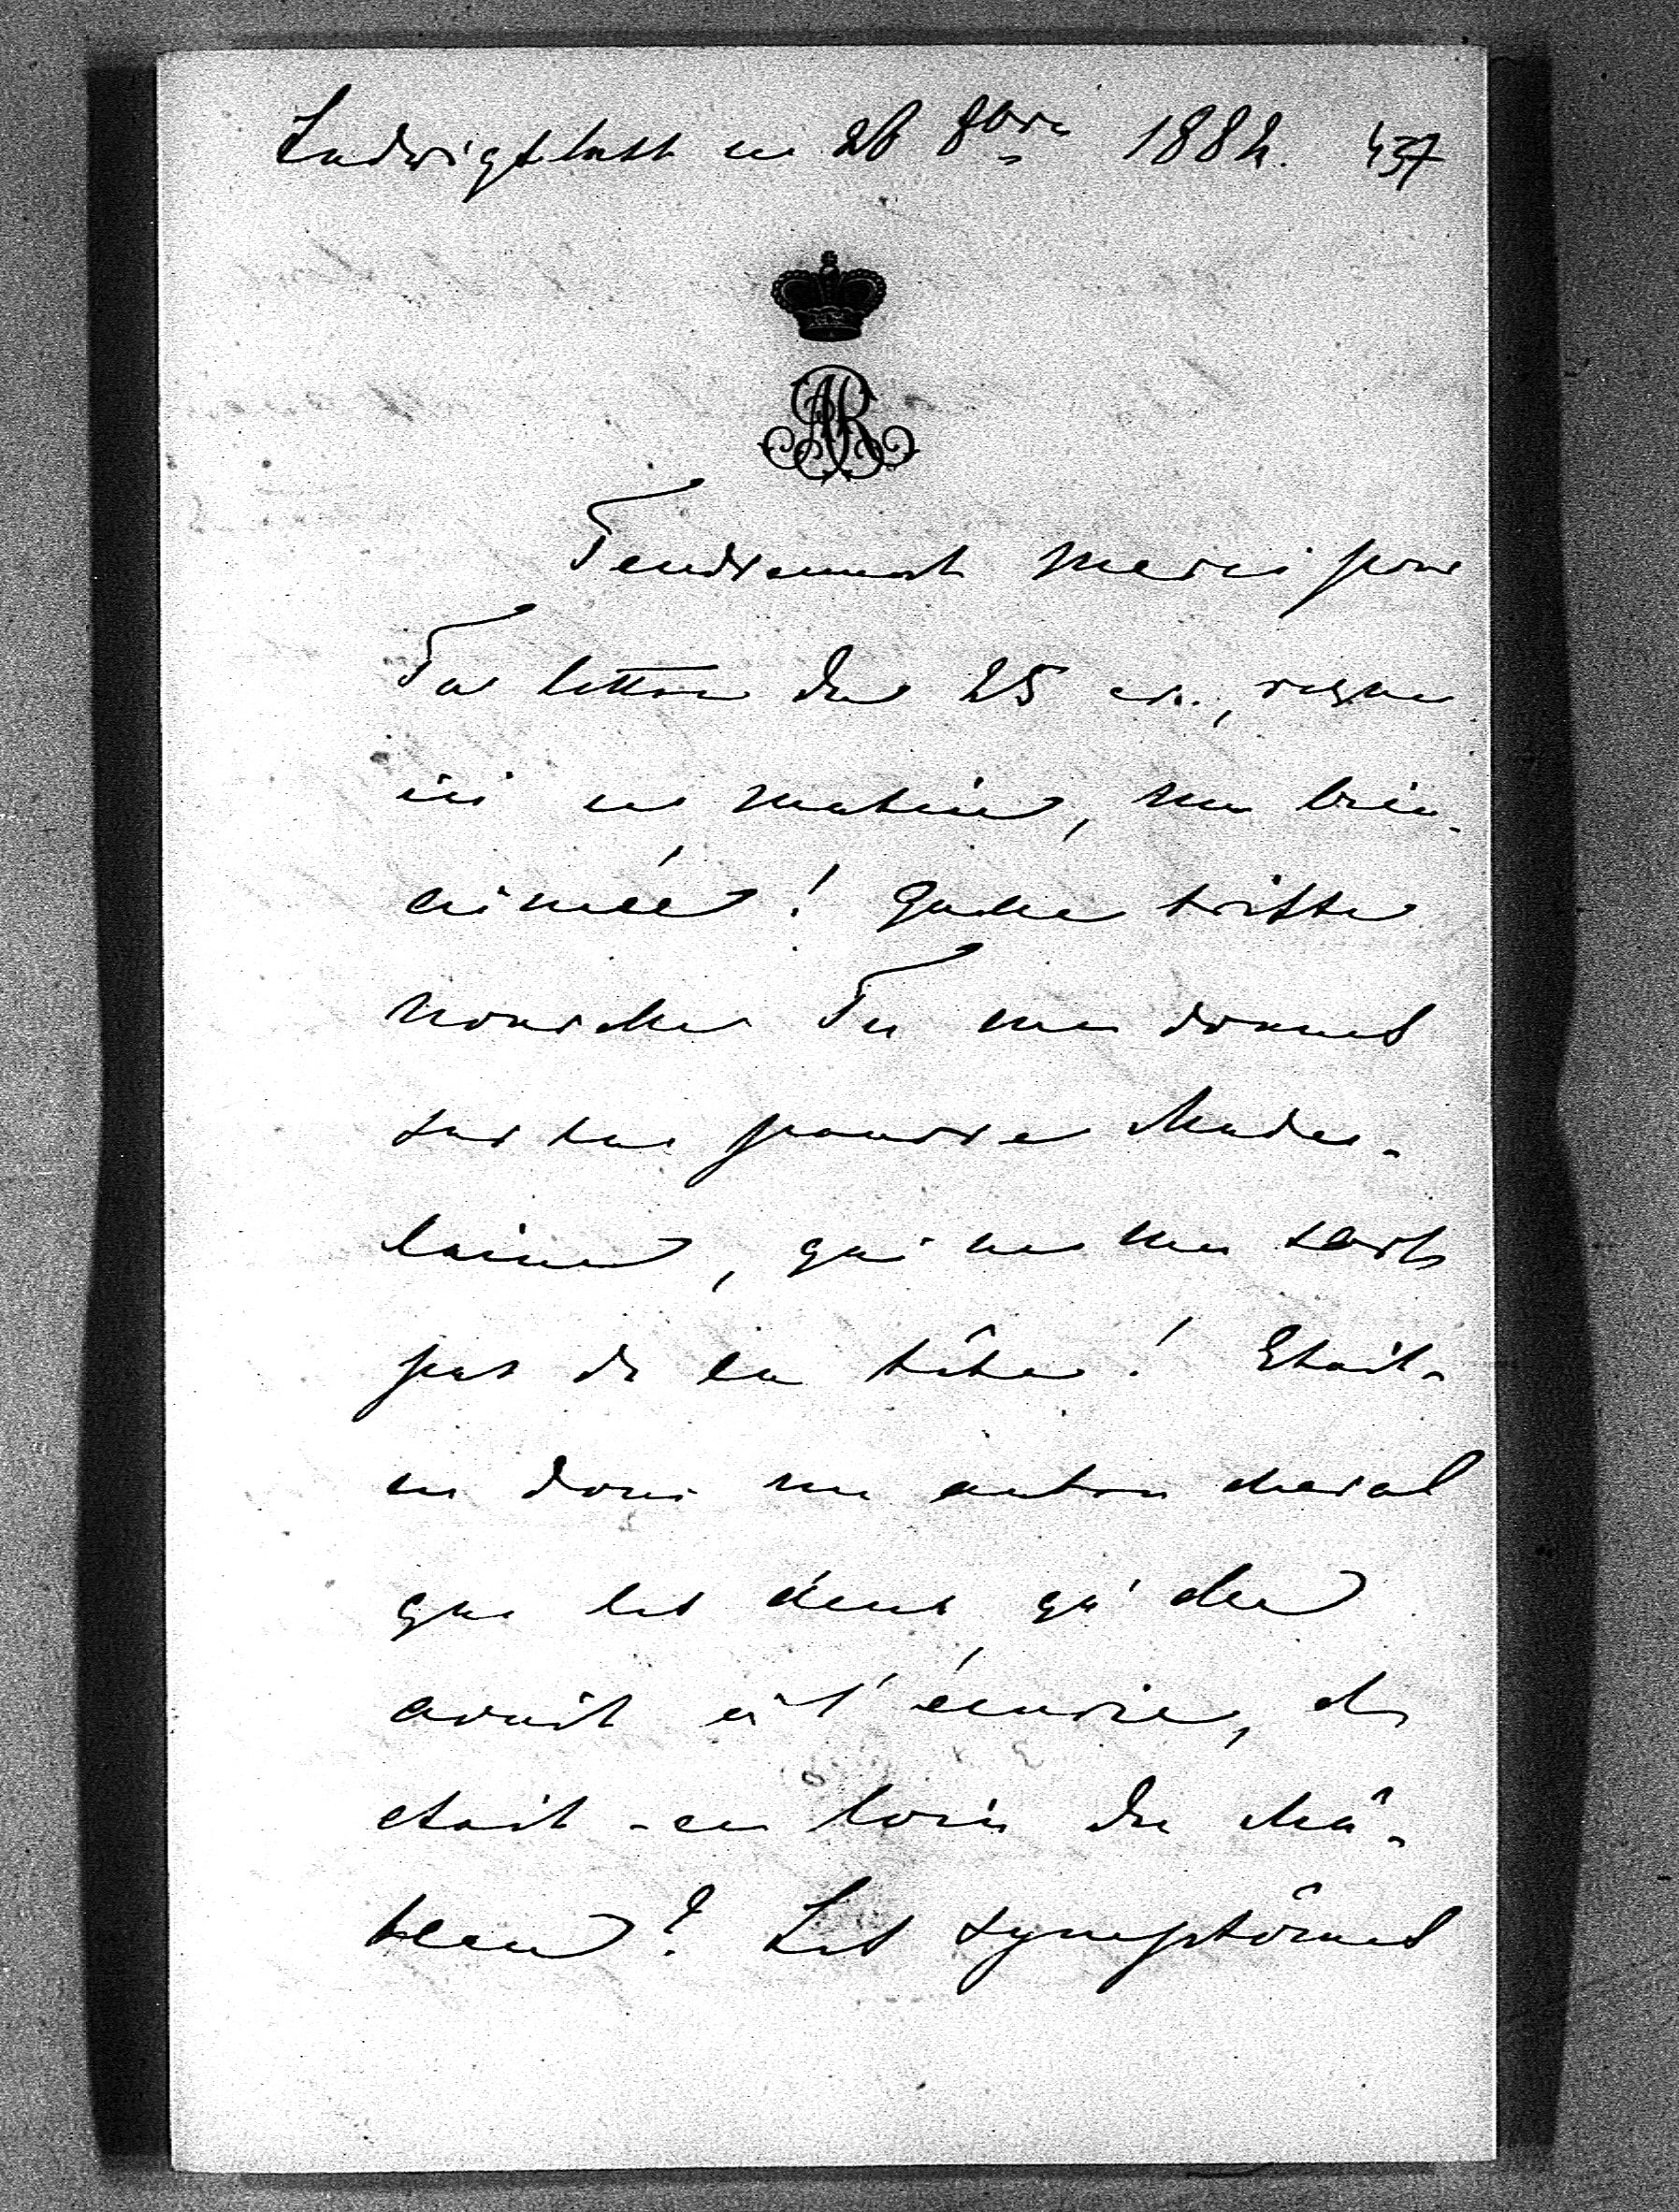 Ludwigslust ce 26 8bre 1882. 437
AR
Tendrement merci pour
Ta lettre du 25 cr., reçue
ici ce matin, ma bien-
aimée! Quelle triste
nouvelle Tu me donnes
sur ta pauvre Made-
laine, qui ne me sort
pas de la tête! Etait-
ce donc un autre cheval
que les deux qu'elle
avait à l'écurie, et
etait-ce loin du châ-
teau? Les symptômes